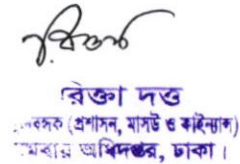 রিক্তা দত্ত
(প্রশাসন, মাসউ ও ফাইন্যান্স)
অধিদপ্তর, ঢাকা।